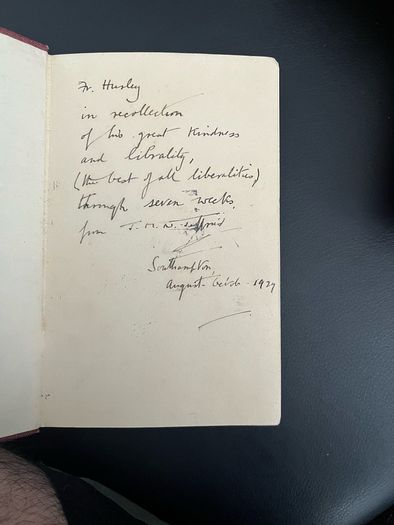 Fr. Hurley
in recollection
of his great kindness
and librality,
(the best of all liberalities)
through seven weeks,
from J. M. N.
Southampton,
August - Octob - 1929